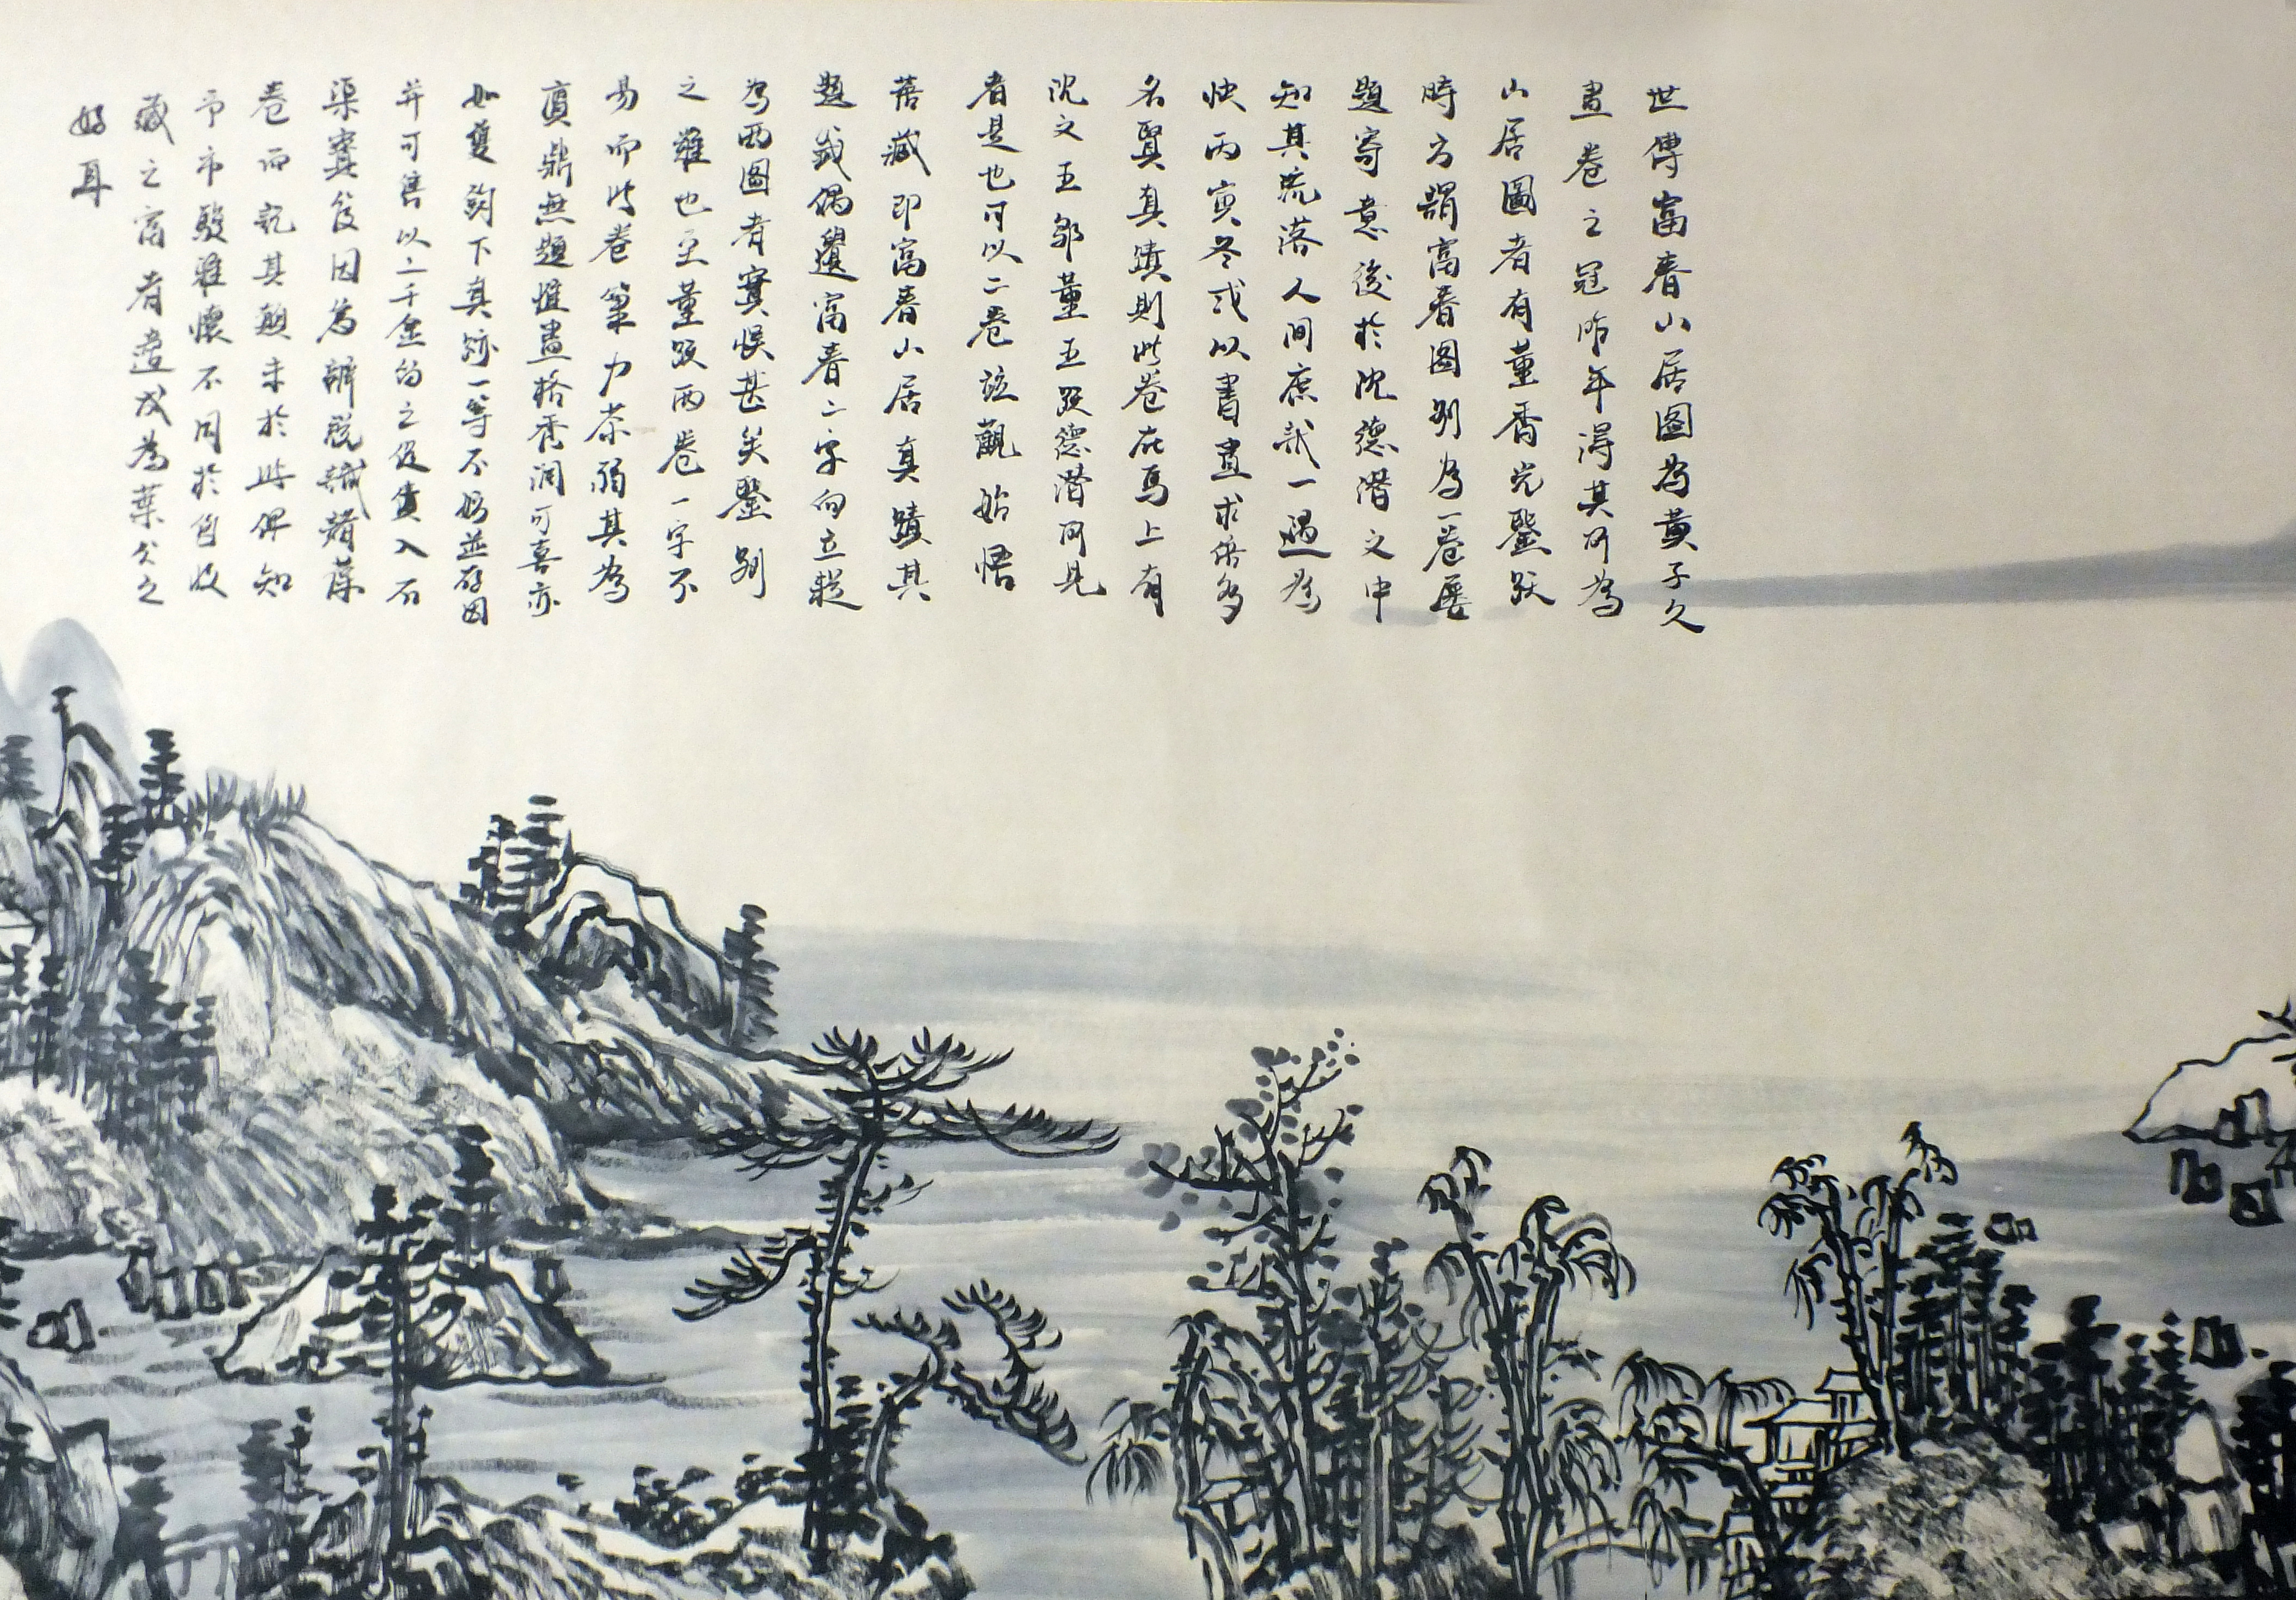 世傳富春山居圖為黃子久
畫卷之冠昨年得其所為
山居圖者有董香光鑒跋
時方謂富春圖別為一卷屢
題寄意後於沈德潛文中
知其流落人間庶哉一遇為
快丙寅冬或以書畫求售多
名賢真蹟則此卷在焉上有
沈文王鄒董五跋德潛所見
者是也可以二卷並觀始悟
舊藏即富春山居真蹟其
題籤偶遺富春二字向立疑
為兩圖者實悞甚矣鑒別
之難也至董跋兩卷一字不
易而此卷筆力茶弱其為
真鼎無題惟畫格秀潤可喜亦
如雙鉤下真跡一等不妨並存因
并可售以二千金的之俊賞入石
渠寶笈因為辨說識諸葆
卷而記其顛末於此俾知
予市駿雅懷不同於自收
藏之富者遺或為葉公之
好耳